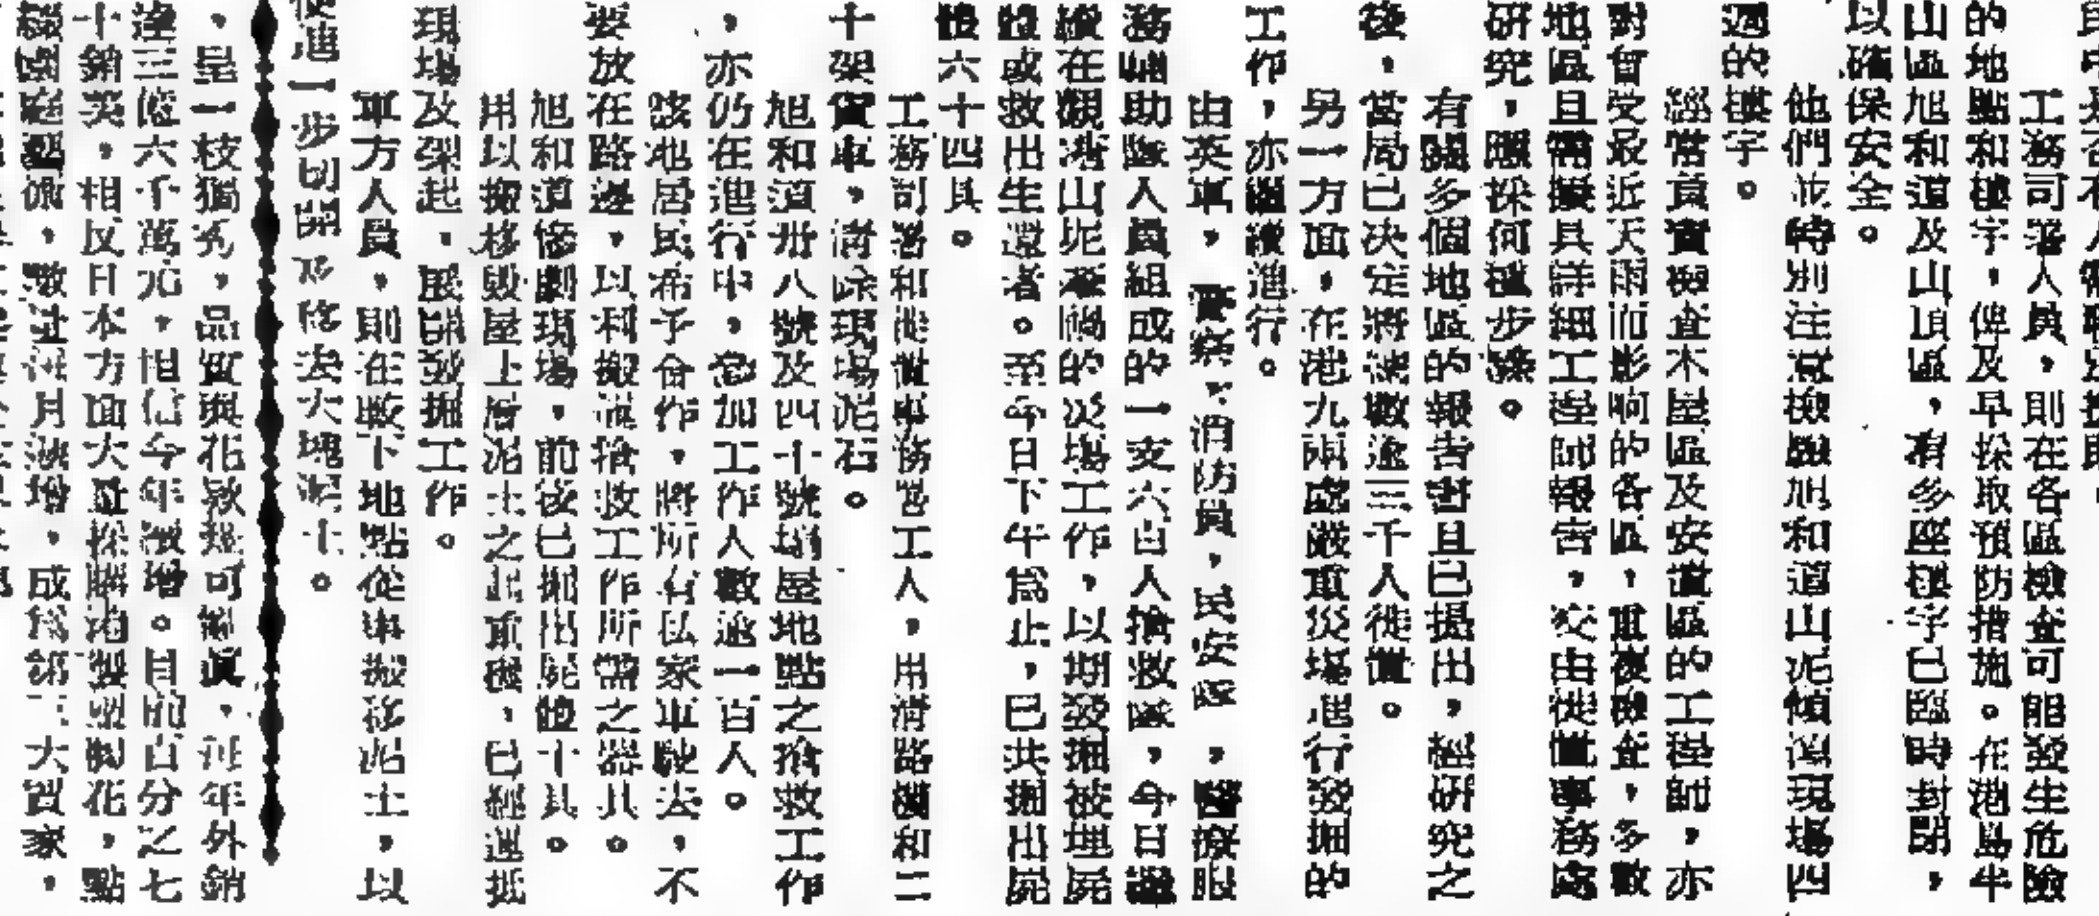 工務司署人員，則在各區檢查可能發生危險
的地點和樓宇，俾及早採取預防措施。在港島半
山區旭和道及山頂區，有多座樓宇已臨時封閉，
以確保安全。
他們並特別注意檢驗旭和道山泥傾瀉現場四
週的樓宇。
經常負責檢查木屋區及安置區的工程師，亦
對曾受最近天雨而影响的各區，重複檢查，多數
地區且需擬具詳細工程師報告，交由徙置事務處
研究，眼採何種步驟。
有關多個地區的報告書且已提出，經研究之
後，當局已决定將該數逾三千人徙置。
另一方面，在港九兩處嚴重災場進行發掘的
工作，亦繼續進行。
由英軍，警察，消防員，民安隊，醫療服
務輔助隊人員組成的一支六百人搶救隊，今日繼
續在觀塘山坭瀉的災場工作，以期發掘被埋屍
體或救出生還者。至今日下午爲止，已共掘出屍
體六十四具。
工務司署和徙置事務處工人，用清路機和二
十架貨車，清除現場泥石。
旭和道卅八號及四十號塌屋地點之搶救工作
，亦仍在進行中，參加工作人數逾一百人。
該地居民希予合作，將所有私家車駛去，不
要放在路邊，以利搬運搶救工作所需之器具。
旭和道慘劇現場，前後已掘出屍體十具。
用以搬移毀屋上層泥土之起重機，已經運抵
現場及架起，展開發掘工作。
軍方人員，則在較下地點從事搬移泥土，以
便進一步切開及移去大塊泥土。
，呈一枝獨秀，品質與花款可，每年外銷
達三億六千萬元，相信今年激增。目前百分之七
十銷美，相反日本方面大量採購港製塑膠花，點
綴園庭，數量逐月激增，成爲第三大買家，